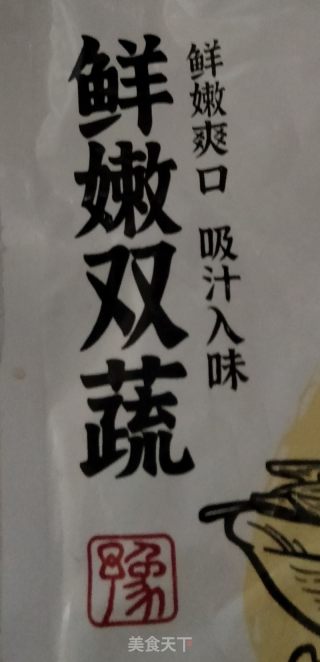 鲜嫩双蔬
鲜嫩爽口 吸汁入味
豫
美食天下